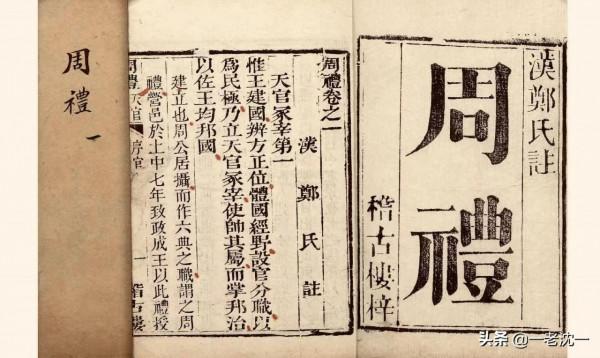 漢鄭氏註
周禮
稽古樓梓
周禮卷之一
漢鄭氏註
天官冢宰第一
惟王建國辨方正位體國經野設官分職以
爲民極乃立天官冢宰使帥其屬而掌邦治
以佐王均邦國
建立也周公居攝而作六典之職謂之周
禮營邑於土中七年致政成王以此禮授
周禮 天官 序官 一 稽古樓
周禮 一
头条 @一老沈一